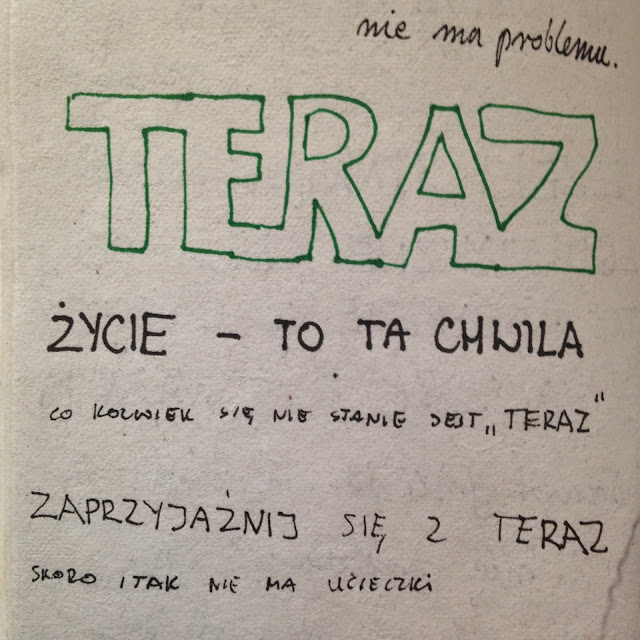 nie ma problemu.
TERAZ
ŻYCIE - TO TA CHWILA
CO KOLWIEK SIĘ NIE STANIE JEST „TERAZ"
ZAPRZYJAŹNIJ SIĘ Z TERAZ
SKORO I TAK NIE MA UCIECZKI